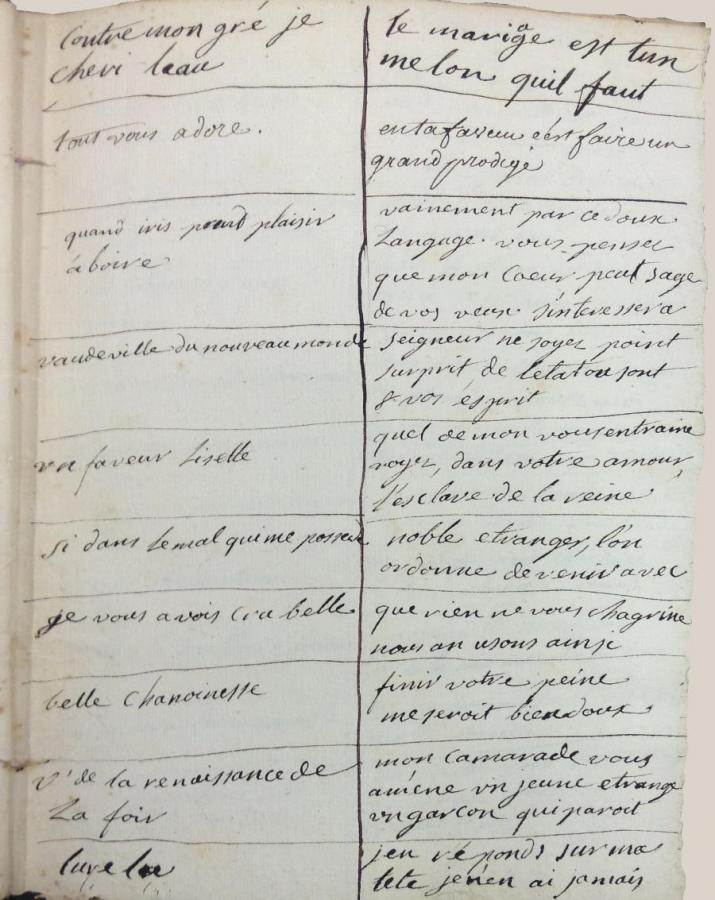 Contre mon gré je
cheri leau
le mariage est tun
melon quil faut
tout vous adore.
en ta faveur c'est faire un
grand prodige
quand iris prend plaisir
a boire
vainement par ce doux
Langage vous penser
que mon Coeur peut sage
de vos veux s'interessera
vaudeville du nouveau monde
seigneur ne soyez point
surprit, de letat ou sont
& vos esprit
vn faveur Lisette
quel demon vous entraine
voyez, dans votre amour,
l'esclave de la reine
si dans le mal qui me possede
noble etranger, l'on
ordonne de venir avec
je vous avois cru belle
que rien ne vous chagrine
nous an usons ainsi
belle chanoinesse
finir votre peine
me seroit bien doux
v' de la renaissance de
La foir
mon camarade vous
améne vn jeune etrange
vn garcon qui paroit
lure lu
jen réponds sur ma
tete je n'en ai jamais